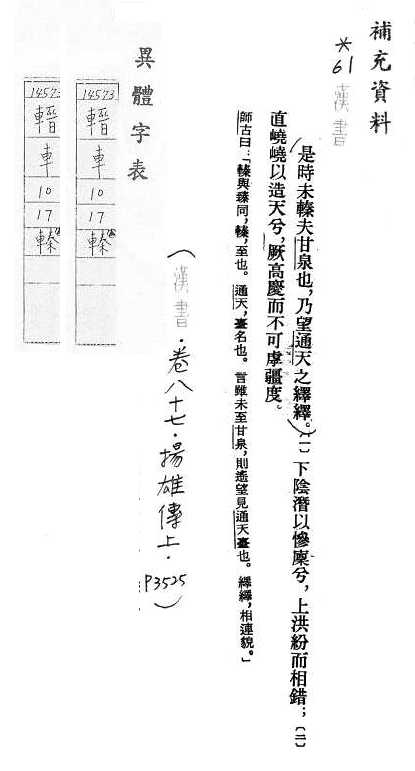 補充資料
*61 漢書
是時未轃夫甘泉也,乃望通天之繹繹。〔一〕下陰潛以慘廩兮,上洪紛而相錯;〔二〕
直嶢嶢以造天兮,厥高慶而不可虖疆度。
師古曰:「轃與臻同,轃,至也。通天,臺名也。言雖未至甘泉,則遙望見通天臺也。繹繹,相連貌。」
(漢書.卷八十七.揚雄傳上.P3525)
異體字表
14573
車
10
17
轃
14573
車
10
17
轃